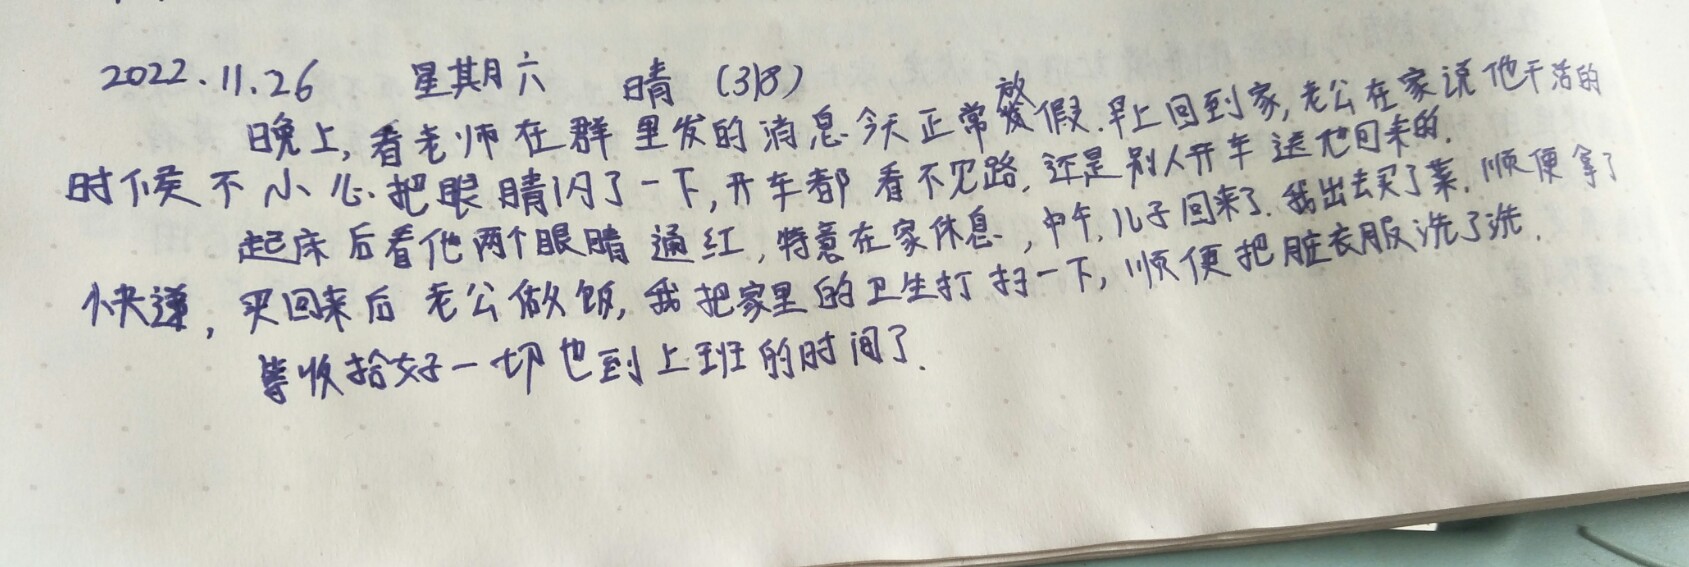 2022.11.26 星期六 晴 (318)
晚上,看老师在群里发的消息.今天正常放假.早上回到家,老公在家说他干活的
时候不小心把眼睛闪了一下,开车都看不见路,还是别人开车送他回来的.
起床后看他两个眼睛通红,特意在家休息,中午,儿子回来了.我出去买了菜,顺便拿了
快递,买回来后老公做饭,我把家里的卫生打扫一下,顺便把脏衣服洗了洗.
等收拾好一切也到上班的时间了.